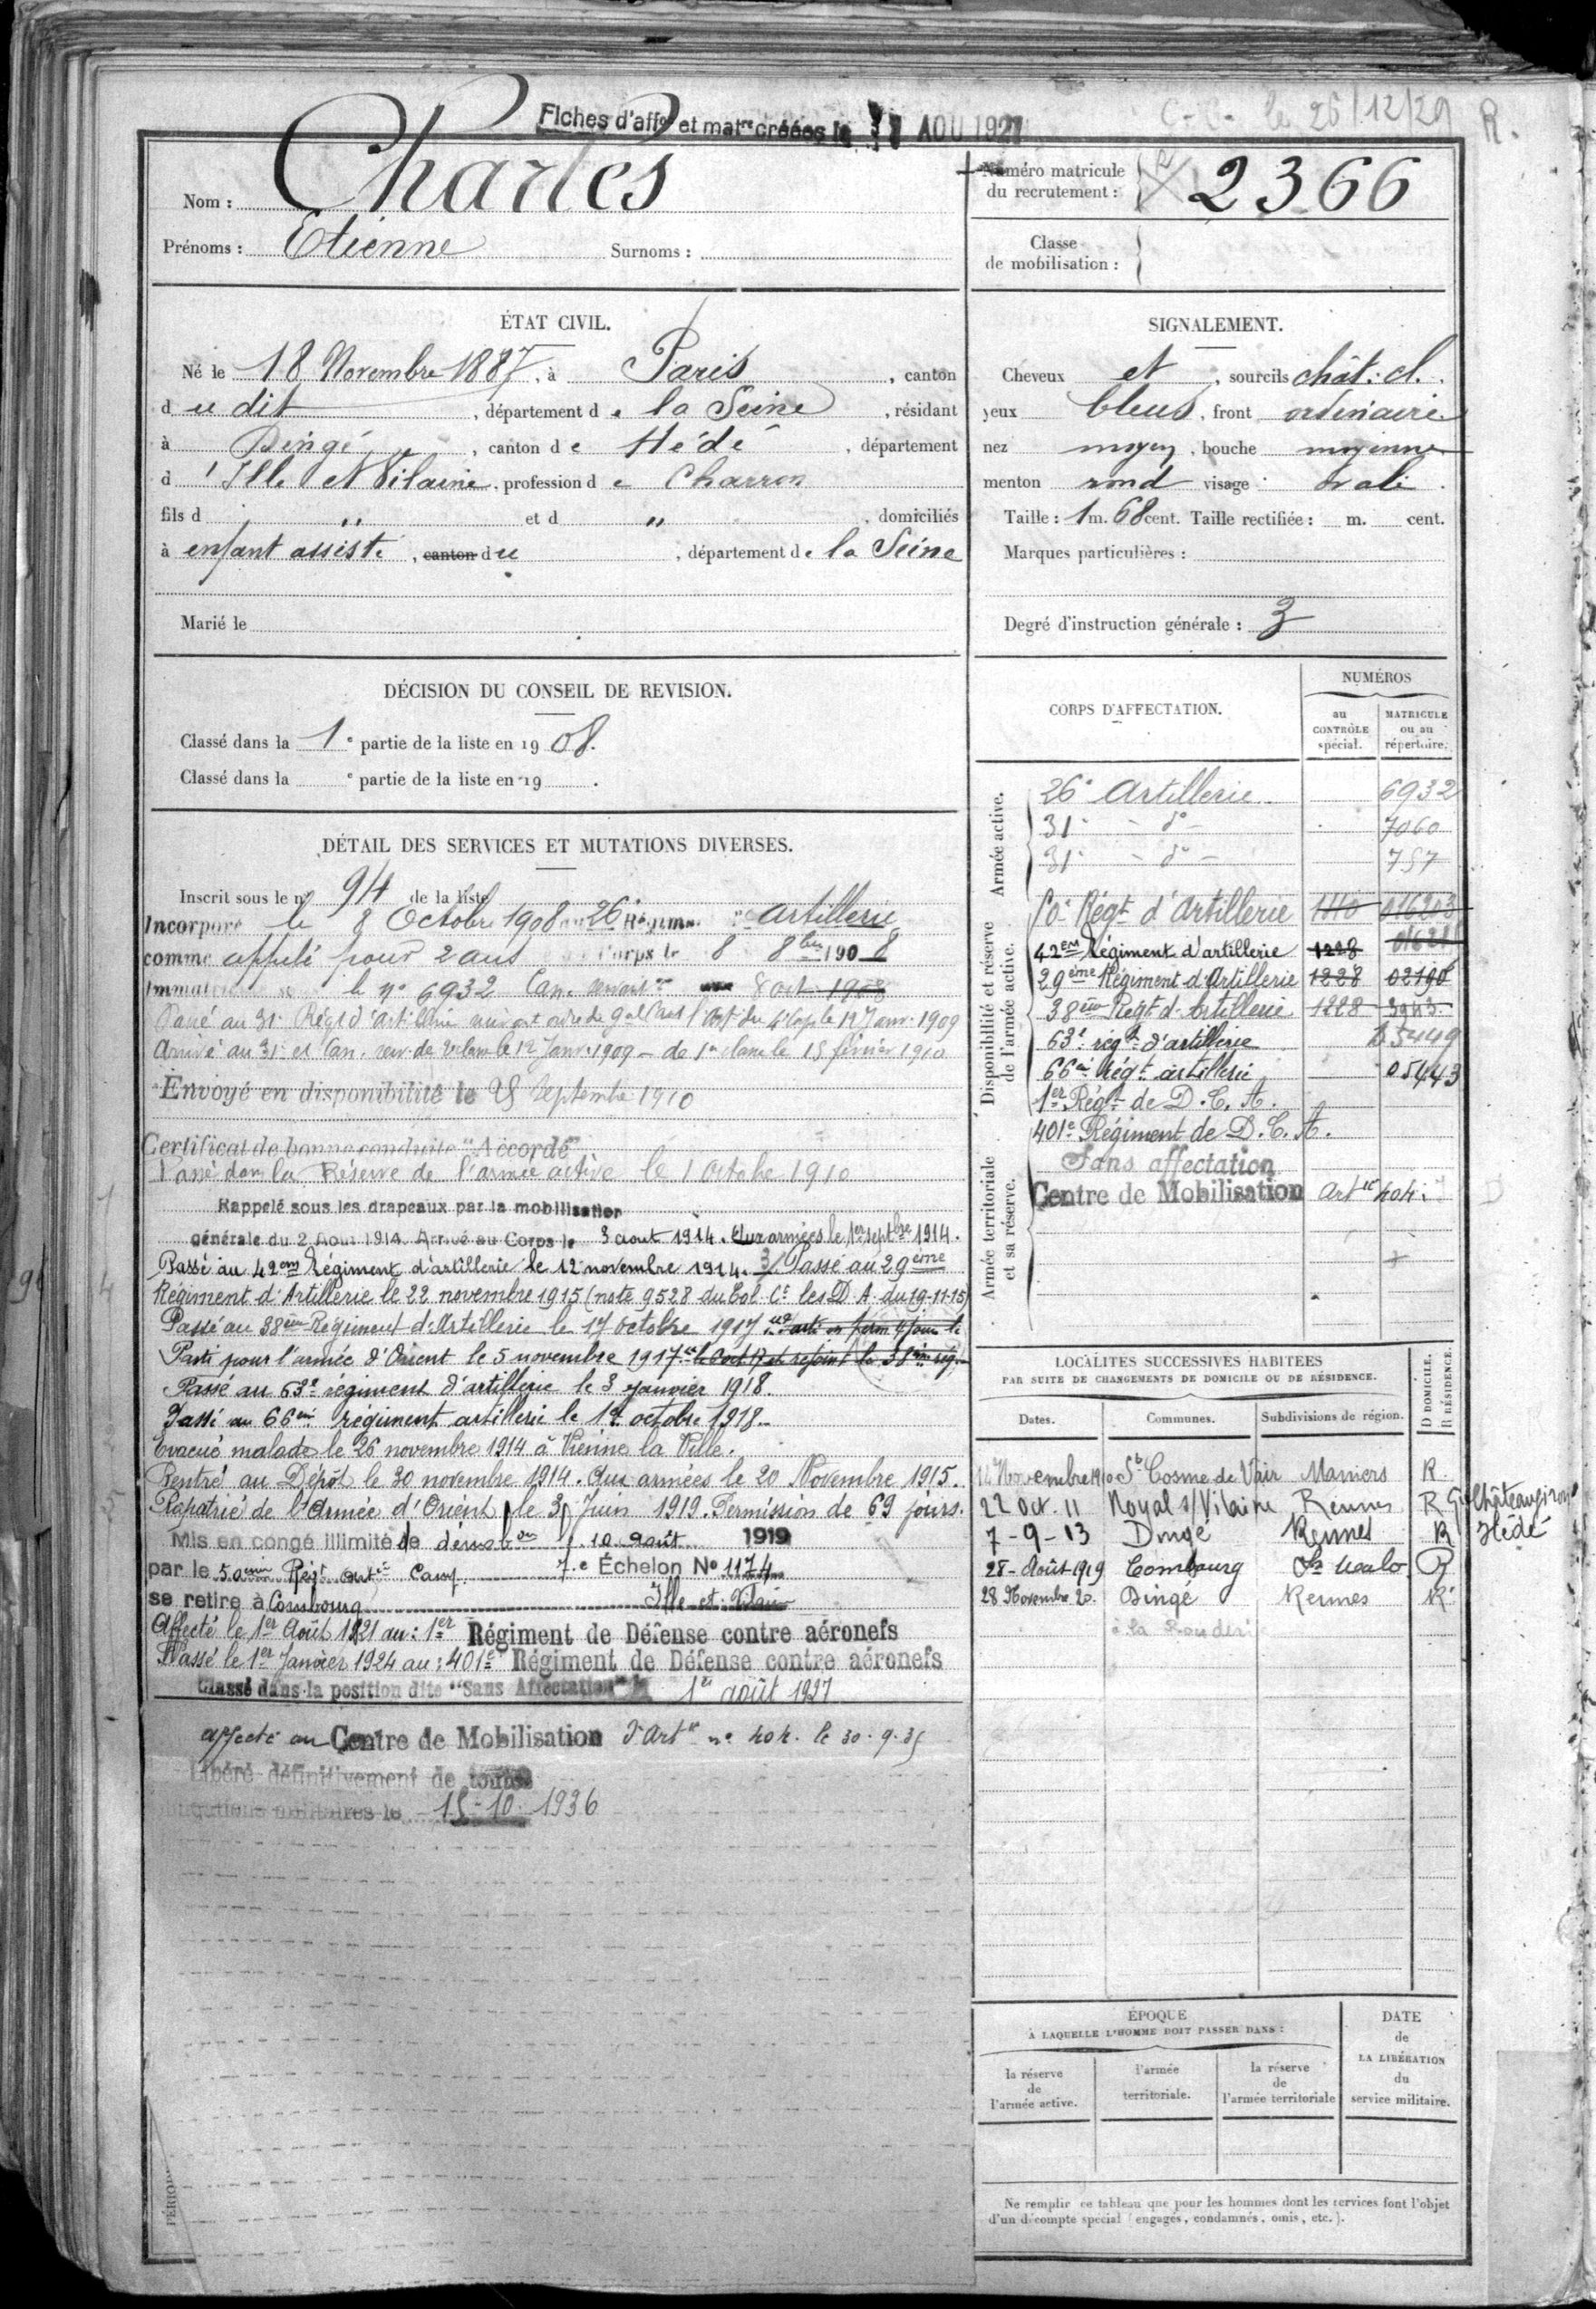 Fiches d'affon et matre créées le 1 AOU 1927
C.C. le 26/12/29 R.
Nom : Charles
Prénoms : Etienne Surnoms :
Numéro matricule
du recrutement : 2366
Classe
de mobilisation :
ÉTAT CIVIL.
Né le 18 Novembre 1887, à Paris, canton
du dit, département de la Seine, résidant
à Dingé, canton de Hédé, département
d'Ille et Vilaine, profession de Charron
fils d " et d ", domiciliés
à enfant assisté, canton du , département de la Seine
Marié le
SIGNALEMENT.
Cheveux et, sourcils chât. cl.
yeux bleus, front ordinaire
nez moyen, bouche moyenne
menton rond visage ovale.
Taille : 1 m. 68 cent. Taille rectifiée : m. cent.
Marques particulières :
Degré d'instruction générale : 3
DÉCISION DU CONSEIL DE REVISION.
Classé dans la 1e partie de la liste en 1908.
Classé dans la e partie de la liste en 19 .
DÉTAIL DES SERVICES ET MUTATIONS DIVERSES.
Inscrit sous le n° 94 de la liste
Incorporé le 8 Octobre 1908 au 26e Régiment d'artillerie
comme appelé pour 2 ans Corps le 8 8bre 1908
Immatriculé le n° 6932 Can. servant 8 oct. 1908
Passé au 31e Régt d'artillerie suivant ordre du Gal Cmt l'Art. du 4e Corps le 12 Janv. 1909
Arrivé au 31e et Can. serv. de 2e classe le 12 Janv. 1909 - de 1re classe le 15 février 1910
Envoyé en disponibilité le 25 Septembre 1910
Certificat de bonne conduite "Accordé"
Passé dans la Réserve de l'armée active le 1 Octobre 1910
Rappelé sous les drapeaux par la mobilisation
générale du 2 Août 1914. Arrivé au Corps le 3 aout 1914. Aux armées le 1er septbre 1914.
Passé au 42eme Régiment d'artillerie le 12 novembre 1914. Passé au 29ème
Régiment d'Artillerie le 22 novembre 1915 (note 9528 du Col. Ct les D.A. du 19-11-15)
Passé au 38ème Régiment d'Artillerie le 17 octobre 1917
Parti pour l'armée d'Orient le 5 novembre 1917
Passé au 63e régiment d'artillerie le 3 janvier 1918.
Passé au 66eme régiment artillerie le 1er octobre 1918.
Evacué malade le 26 novembre 1914 à Vienne la Ville.
Rentré au Dépôt le 30 novembre 1914. Aux armées le 20 Novembre 1915.
Rapatrié de l'Armée d'Orient le 3 Juin 1919. Permission de 69 jours.
Mis en congé illimité de démobon 10 août 1919
par le 50eme Régt artie Camp. 7e Échelon N° 1174
se retire à Combourg Ille et Vilaine
Affecté le 1er Août 1921 au : 1er Régiment de Défense contre aéronefs
Passé le 1er Janvier 1924 au : 401e Régiment de Défense contre aéronefs
Classé dans la position dite "Sans Affectation" 1er août 1927
affecté au Centre de Mobilisation d'Artie n° 404. le 30.9.35
Libéré définitivement de toutes
obligations militaires le 15-10-1936
CORPS D'AFFECTATION.
NUMÉROS
au CONTRÔLE spécial.
MATRICULE ou au répertoire.
Armée active.
26e Artillerie 6932
31e - do - 7060
31e - do - 757
Disponibilité et réserve
de l'armée active.
50e Régt d'Artillerie 1110 016203
42eme Régiment d'artillerie 1228
29ème Régiment d'Artillerie 1228 02190
38ème Régt d'Artillerie 1228 3943
63e régt d'artillerie 05449
66e régt artillerie 05443
1er Régt de D.C.A.
401e Régiment de D.C.A.
Armée territoriale
et sa réserve.
Sans affectation
Centre de Mobilisation Artie 404
LOCALITÉS SUCCESSIVES HABITÉES
PAR SUITE DE CHANGEMENTS DE DOMICILE OU DE RÉSIDENCE.
D DOMICILE.
R RÉSIDENCE.
Dates. Communes. Subdivisions de région.
14 Novembre 1910 St Cosme de Vair Mamers R
22 Oct. 11 Noyal s/Vilaine Rennes R Châteaugiron
7-9-13 Dingé Rennes R Hédé
28-Août-1919 Combourg St Malo R
28 Novembre 20. Dingé Rennes R
à la
ÉPOQUE
À LAQUELLE L'HOMME DOIT PASSER DANS :
la réserve de l'armée active.
l'armée territoriale.
la réserve de l'armée territoriale
DATE de LA LIBÉRATION du service militaire.
Ne remplir ce tableau que pour les hommes dont les services font l'objet
d'un décompte spécial (engagés, condamnés, omis, etc.).